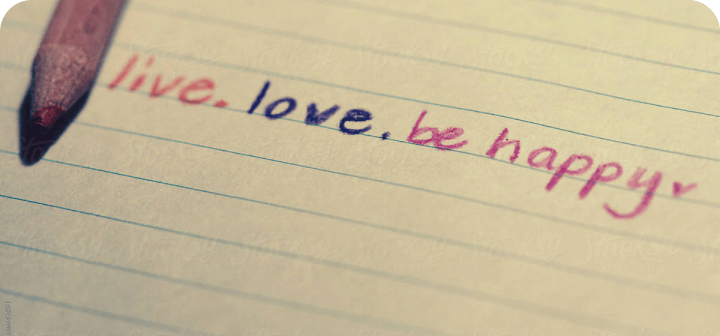 live. love. be happy♥